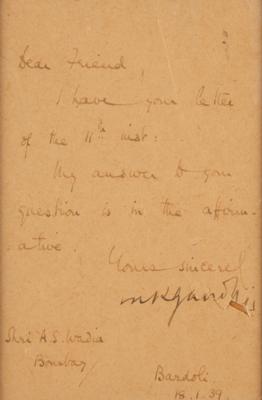 Dear Friend,
I have your letter
of the 11th inst:
My answer to your
question is in the affirm-
ative.
Yours sincerely
MKGandhi
Shri A.S. Wadia
Bombay
Bardoli
18.1.39.